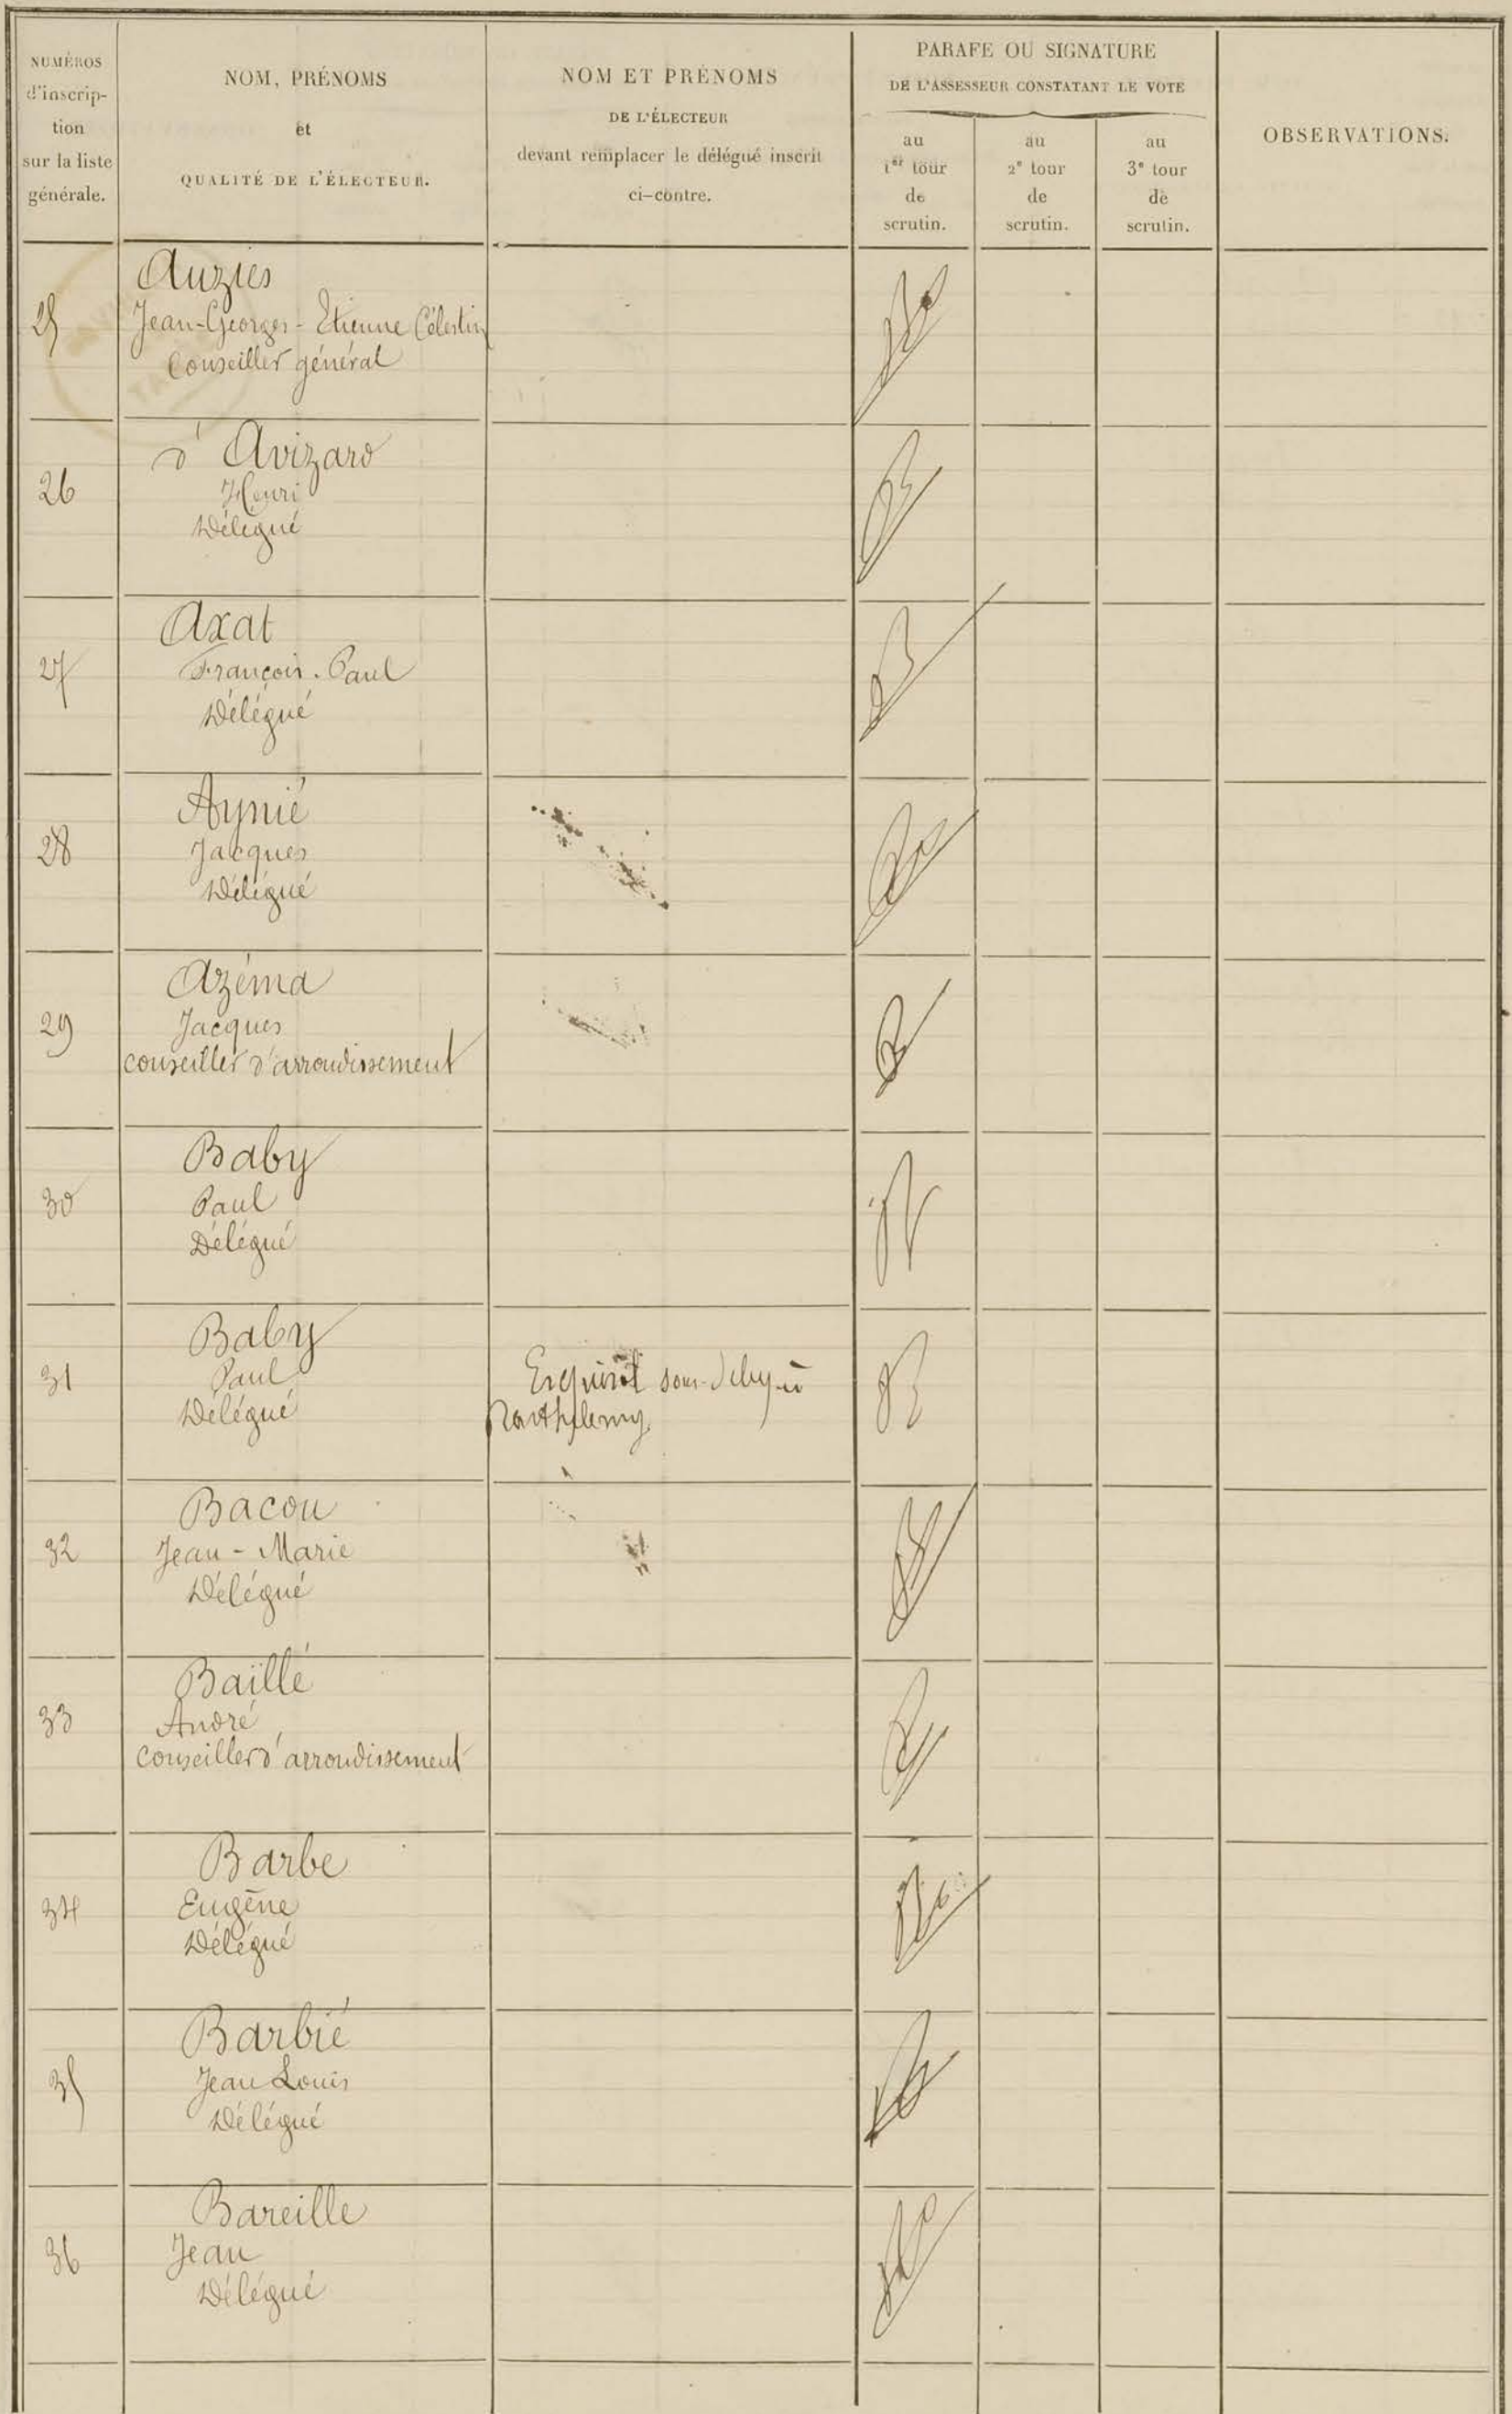 NUMÉROS
d'inscrip-
tion
sur la liste
générale.
NOM, PRÉNOMS
et
QUALITÉ DE L'ÉLECTEUR.
NOM ET PRÉNOMS
DE L'ÉLECTEUR
devant remplacer le délégué inscrit
ci-contre.
PARAFE OU SIGNATURE
DE L'ASSESSEUR CONSTATANT LE VOTE
au
1er tour
de
scrutin.
au
2e tour
de
scrutin.
au
3e tour
de
scrutin.
OBSERVATIONS.
25
Auziés
Jean-Georges-Etienne Célestin
Conseiller général
26
d'Avizard
Henri
Délégué
27
Axat
François-Paul
Délégué
28
Aynié
Jacques
Délégué
29
Azéma
Jacques
conseiller d'arrondissement
30
Baby
Paul
Délégué
31
Baby
Paul
Délégué
Barthelemy
32
Bacou
Jean-Marie
Délégué
33
Baillé
André
Conseiller d'arrondissement
34
Barbe
Eugène
Délégué
35
Barbié
Jean Louis
Délégué
36
Bareille
Jean
Délégué